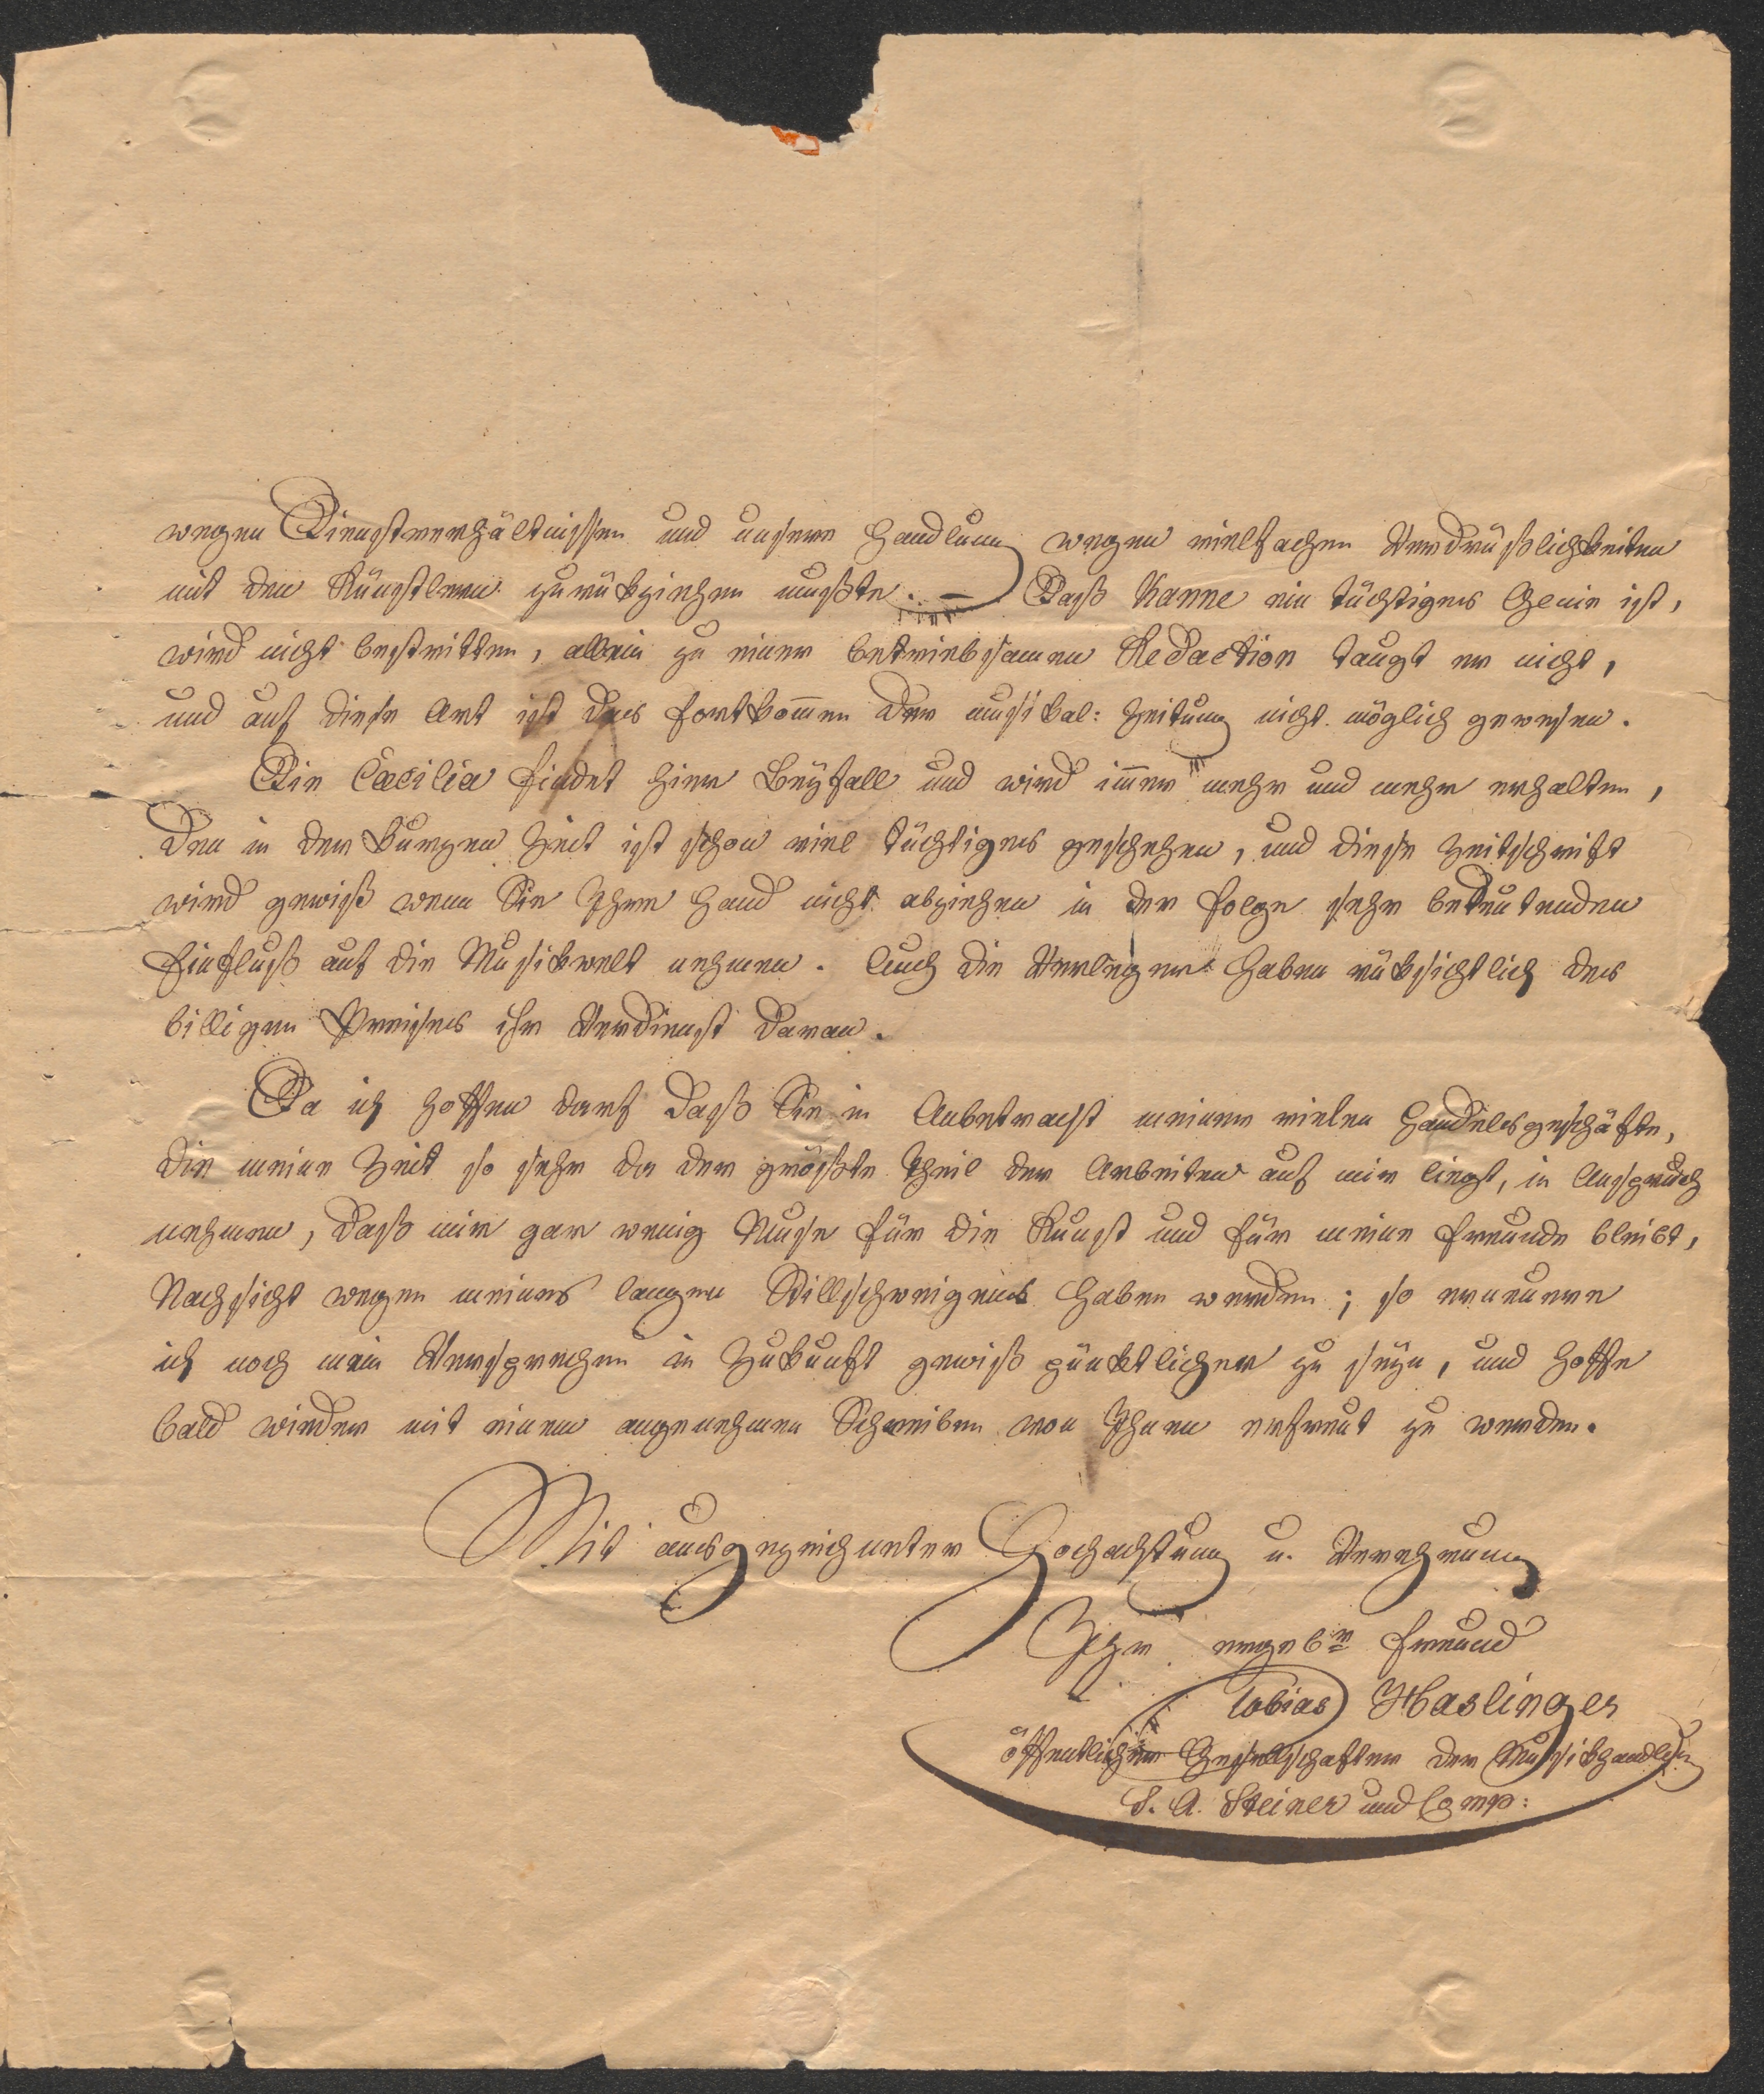 wegen Dienstverhältnissen und unsere Handlung wegen vielfachen Verdrüßlichkeiten
mit den Künstlern zurükziehen mußte. — Daß Kanne ein tüchtiges Genie ist,
wird nicht bestritten, allein zu einer betriebsamen Redaction taugt er nicht,
und auf diese Art ist das Fortkom̅en der musikal: Zeitung nicht möglich gewesen.
Die Cæcilia findet hier Beyfall und wird im̅er mehr und mehr erhalten,
den in der kurzen Zeit ist schon viel tüchtiges geschehen, und diese Zeitschrift
wird gewiß wenn Sie Ihre Hand nicht abziehen in der Folge sehr bedeutenden
Einfluß auf die Musikwelt nehmen. Auch die Verleger haben rüksichtlich des
billigen Preises ihr Verdienst daran.
Da ich hoffen darf daß Sie in Anbetracht meiner vielen Handelsgeschäfte,
die meine Zeit so sehr da der größte Theil der Arbeiten auf mir liegt, in Anspruch
nehmen, daß mir gar wenig Muse für die Kunst und für meine Freunde bleibt,
Nachsicht wegen meines langen Stillschweigens haben werden; so erneuere
ich noch mein Versprechen in Zukunft gewiß pünktlicher zu seyn, und hoffe
bald wieder mit einem angenehmen Schreiben von Ihnen erfreut zu werden.
Mit ausgezeichneter Hochachtung u. Verehrung
Ihr ergebr Freund
Tobias Haslinger
öffentlicher Gesellschafter der Musikhandlg
S. A. Steiner und Comp: